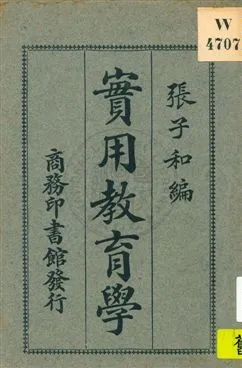 W
4707
張子和編
實用教育學
商務印書館發行
舊